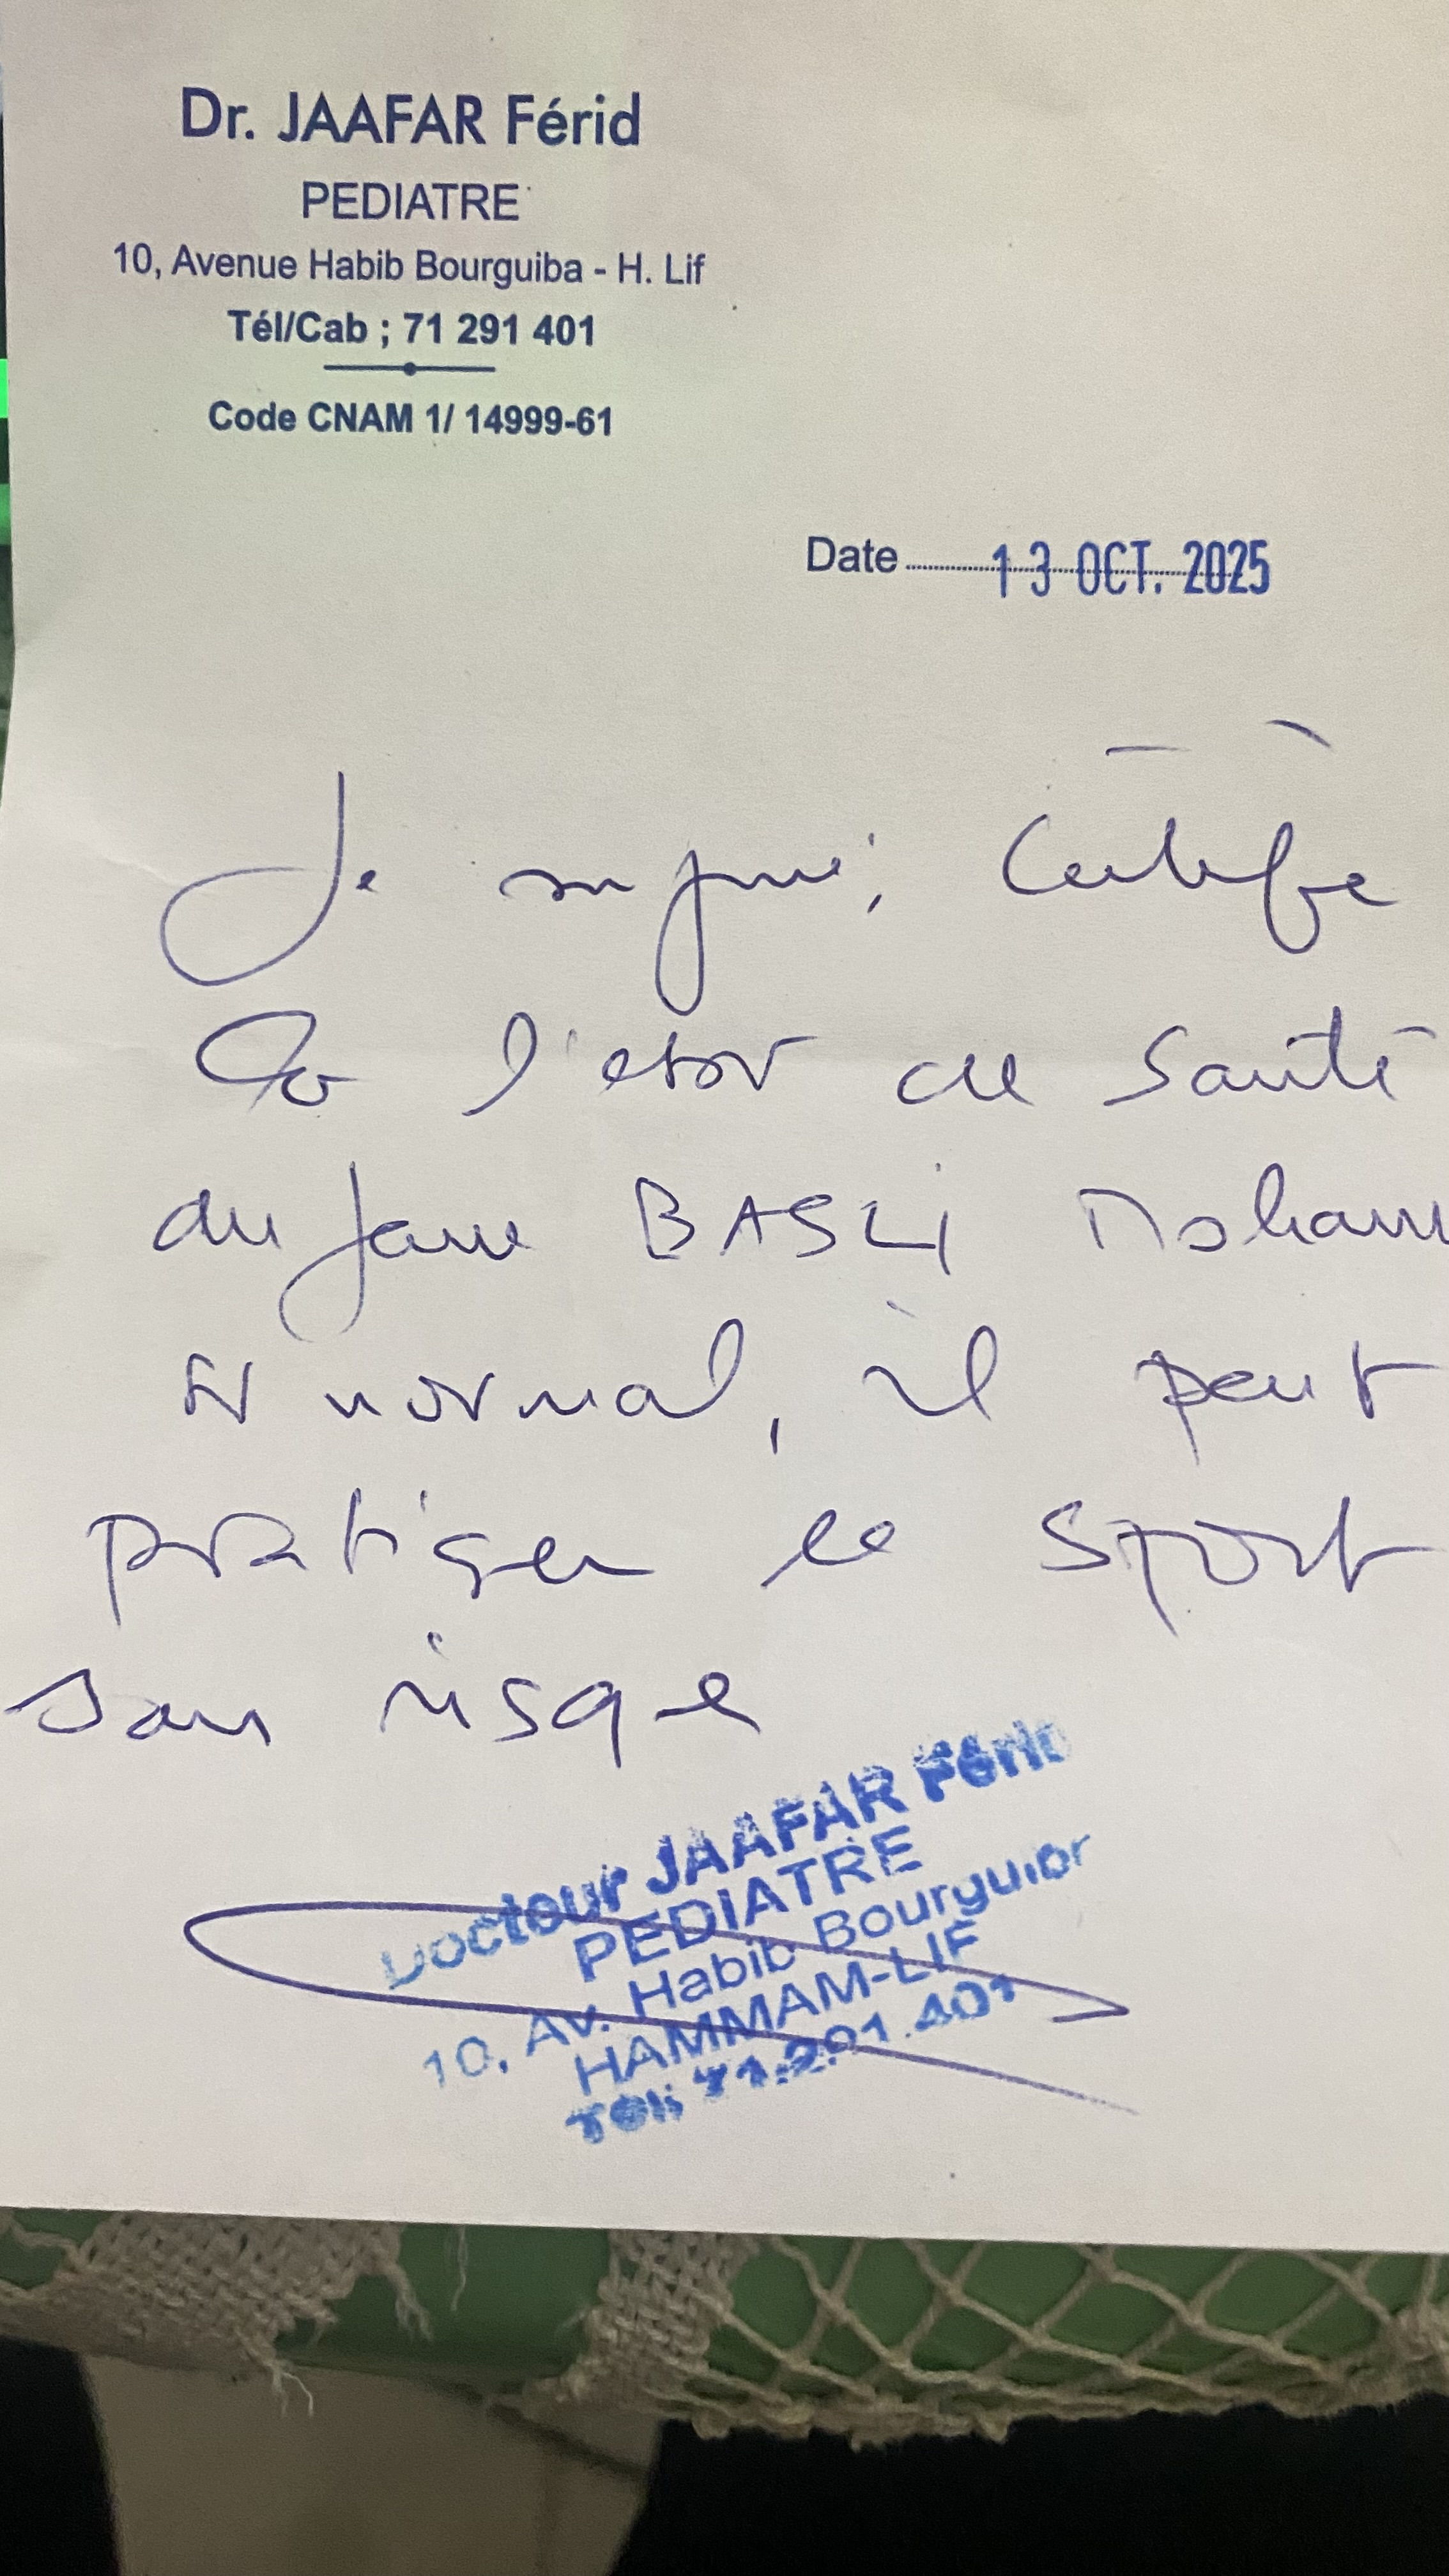 Dr. JAAFAR Férid
PEDIATRE
10, Avenue Habib Bourguiba - H. Lif
Tél/Cab ; 71 291 401
Code CNAM 1/ 14999-61
Date 13 OCT. 2025
Je certifie
l'etat de santé
du jeune BASLi Moham
est normal, il peut
pratiquer le sport
sans risque
Docteur JAAFAR Férid
PEDIATRE
10, Av. Habib Bourguiba
HAMMAM-LIF
Tél: 71.291.401